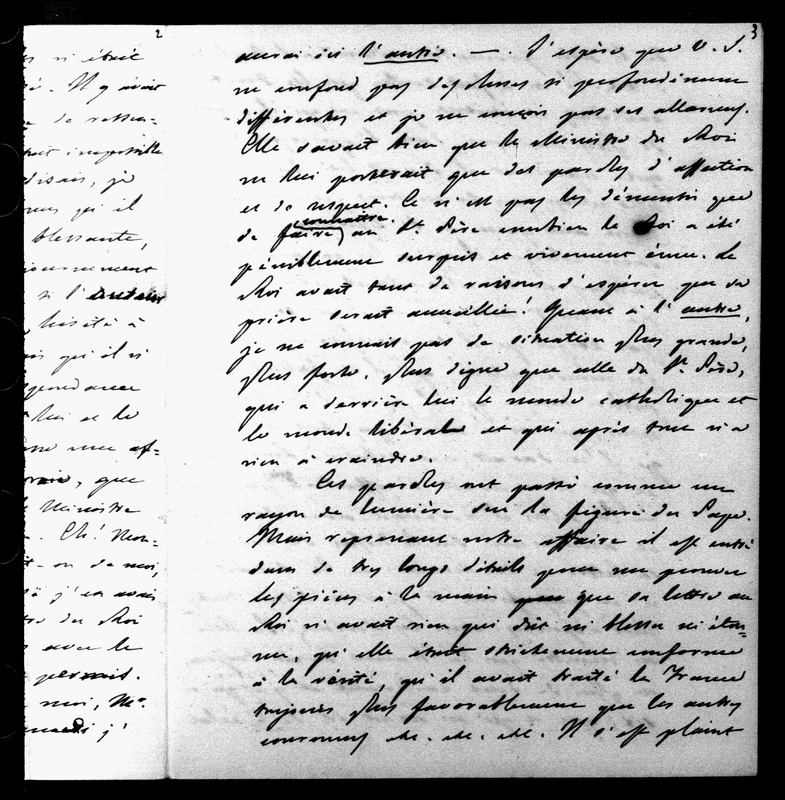 2
si étaié
é. Il y avait
de ressen-
tait impossible
disais, je
qu'il
blessante,
si l'auteur
hésité à
mais qu'il n'
lui et le
une af-
vraie, que
Ministre
. Eh! Mon-
t-on de moi,
j'en avais
du Roi
avec le
permis.
moi, Mr.
j'
3
aussi ici l'autre. —. J'espère que V. S.
ne confond pas des choses si profondément
différentes et je ne conçois pas ses allarmes.
Elle savait bien que le Ministre du Roi
ne lui porterait que des paroles d'affection
et de respect. Ce n'est pas les démentir que
connaître
de faire, au St. Père combien le Roi a été
péniblement surpris et vivement ému. Le
Roi avait tant de raisons d'espérer que sa
prière serait accueillie! Quant à l'autre,
je ne connais pas de situation plus grande,
plus forte, plus digne que celle du St. Père,
qui a derrière lui le monde catholique et
le monde libéral et qui après tout n'a
rien à craindre.
Ces paroles ont passé comme un
rayon de lumière sur la figure du Pape.
Mais reprenant notre affaire il est entré
dans de très longs détails pour me prouver
les pièces à la main que sa lettre au
Roi n'avait rien qui dût ni blesser ni éton-
ner, qu'elle était strictement conforme
à la vérité, qu'il avait traité la France
toujours plus favorablement que les autres
couronnes etc. etc. etc. Il s'est plaint